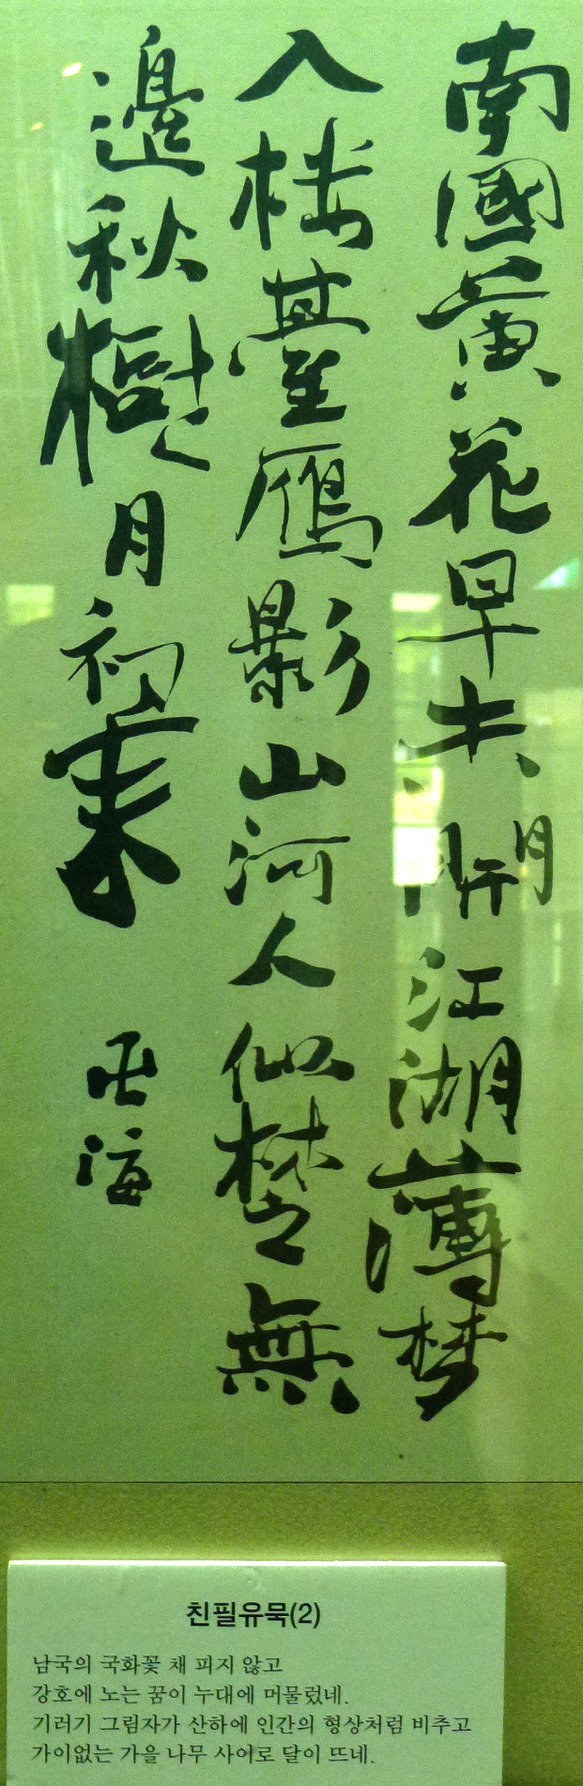 南國黃花早未開江湖薄梦
入樓臺鴈影山河人似楚無
邊秋樹月初來
卍海
친필유묵(2)
남국의 국화꽃 채 피지 않고
강호에 노는 꿈이 누대에 머물렀네.
기러기 그림자가 산하에 인간의 형상처럼 비추고
가이없는 가을 나무 사이로 달이 뜨네.